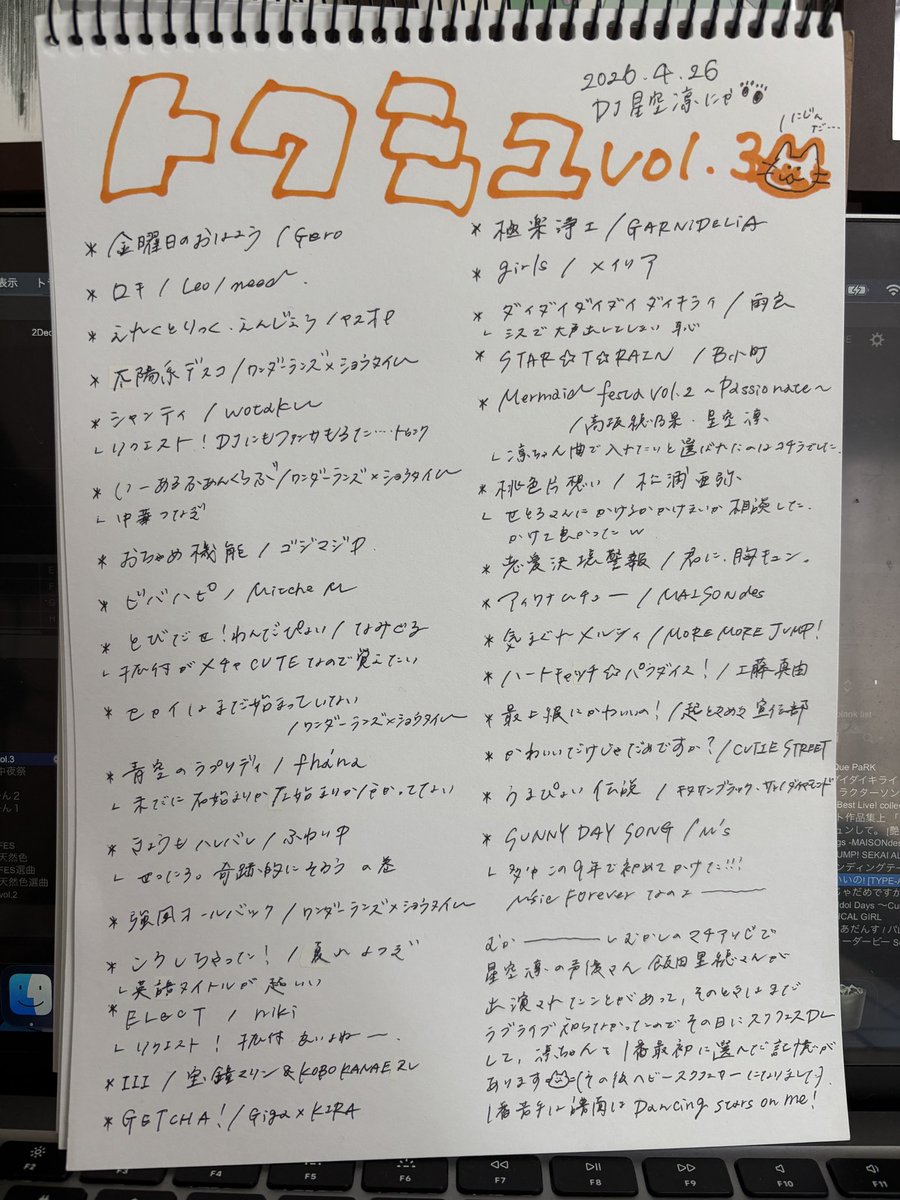 2026.4.26
DJ 星空凛にゃ
トクミュ vol.3
にじんだ…
* 金曜日のおはよう / Gero
* ロキ / Leo/need
* えれくとりっく・えんじぇぅ / ヤスオP
* 太陽系デスコ / ワンダーランズ×ショウタイム
* シャンティ / wotaku
└ リクエスト! DJにもファンサもろた…
* いーあるふぁんくらぶ / ワンダーランズ×ショウタイム
└ 中華つなぎ
* おちゃめ機能 / ゴジマジP
* ビバハピ / Mitchie M
* とびだせ!わんだぴぃ / なみぐる
└ 振付がメチャCUTEなので覚えたい
* セカイはまだ始まってすらいない
/ ワンダーランズ×ショウタイム
* 青空のラプソディ / fhána
└ 未だに右始まりか左始まりか分かってない
* きょうもハレバレ / ふわりP
└ せつにゃる。奇跡的にそろうの巻
* 強風オールバック / ワンダーランズ×ショウタイム
* こうしちゃった! / 夏代
└ 英語タイトルが
* ELECT / niki
└ リクエスト! 振付良いよねー
* III / 宝鐘マリン & KOBO KANAERU
* GETCHA! / Giga×KIRA
* 極楽浄土 / GARNiDELiA
* girls / メイリア
* ダイダイダイダイダイキライ / 雨良
└ ミスで大声出してしまい 恥
* STAR☆T☆RAIN / B小町
* Mermaid festa vol.2 ~Passionate~
/ 高坂穂乃果・星空凛
└ 凛ちゃん曲で入れたいと選ばれたのはコチラでした
* 桃色片想い / 松浦亜弥
└ せとろさんにかけるかかけまいか相談した.
かけて良かった w
* 恋愛決壊警報 / 君に、胸キュン。
* アイワナムチュー / MAISONdes
* 気まぐれメルシィ / MORE MORE JUMP!
* ハートキャッチ☆パラダイス! / 工藤真由
* 最上級にかわいいの! / 超ときめき♡宣伝部
* かわいいだけじゃだめですか? / CUTIE STREET
* うまぴょい伝説 / キタサンブラック、サトノダイヤモンド
* SUNNY DAY SONG / μ's
└ 多分この9年で初めてかけた!!!
μ'sic Forever なのよ———
むか———しむかしのマチアソビで
星空凛の声優さん 飯田里穂さんが
出演されてたことがあって、そのときはまだ
ラブライブ知らなかったのでその日にスクフェスDL
して、凛ちゃんを1番最初に選んだ記憶が
あります=(その後ヘビースクフェサーになりました).
1番苦手な譜面は Dancing stars on me!